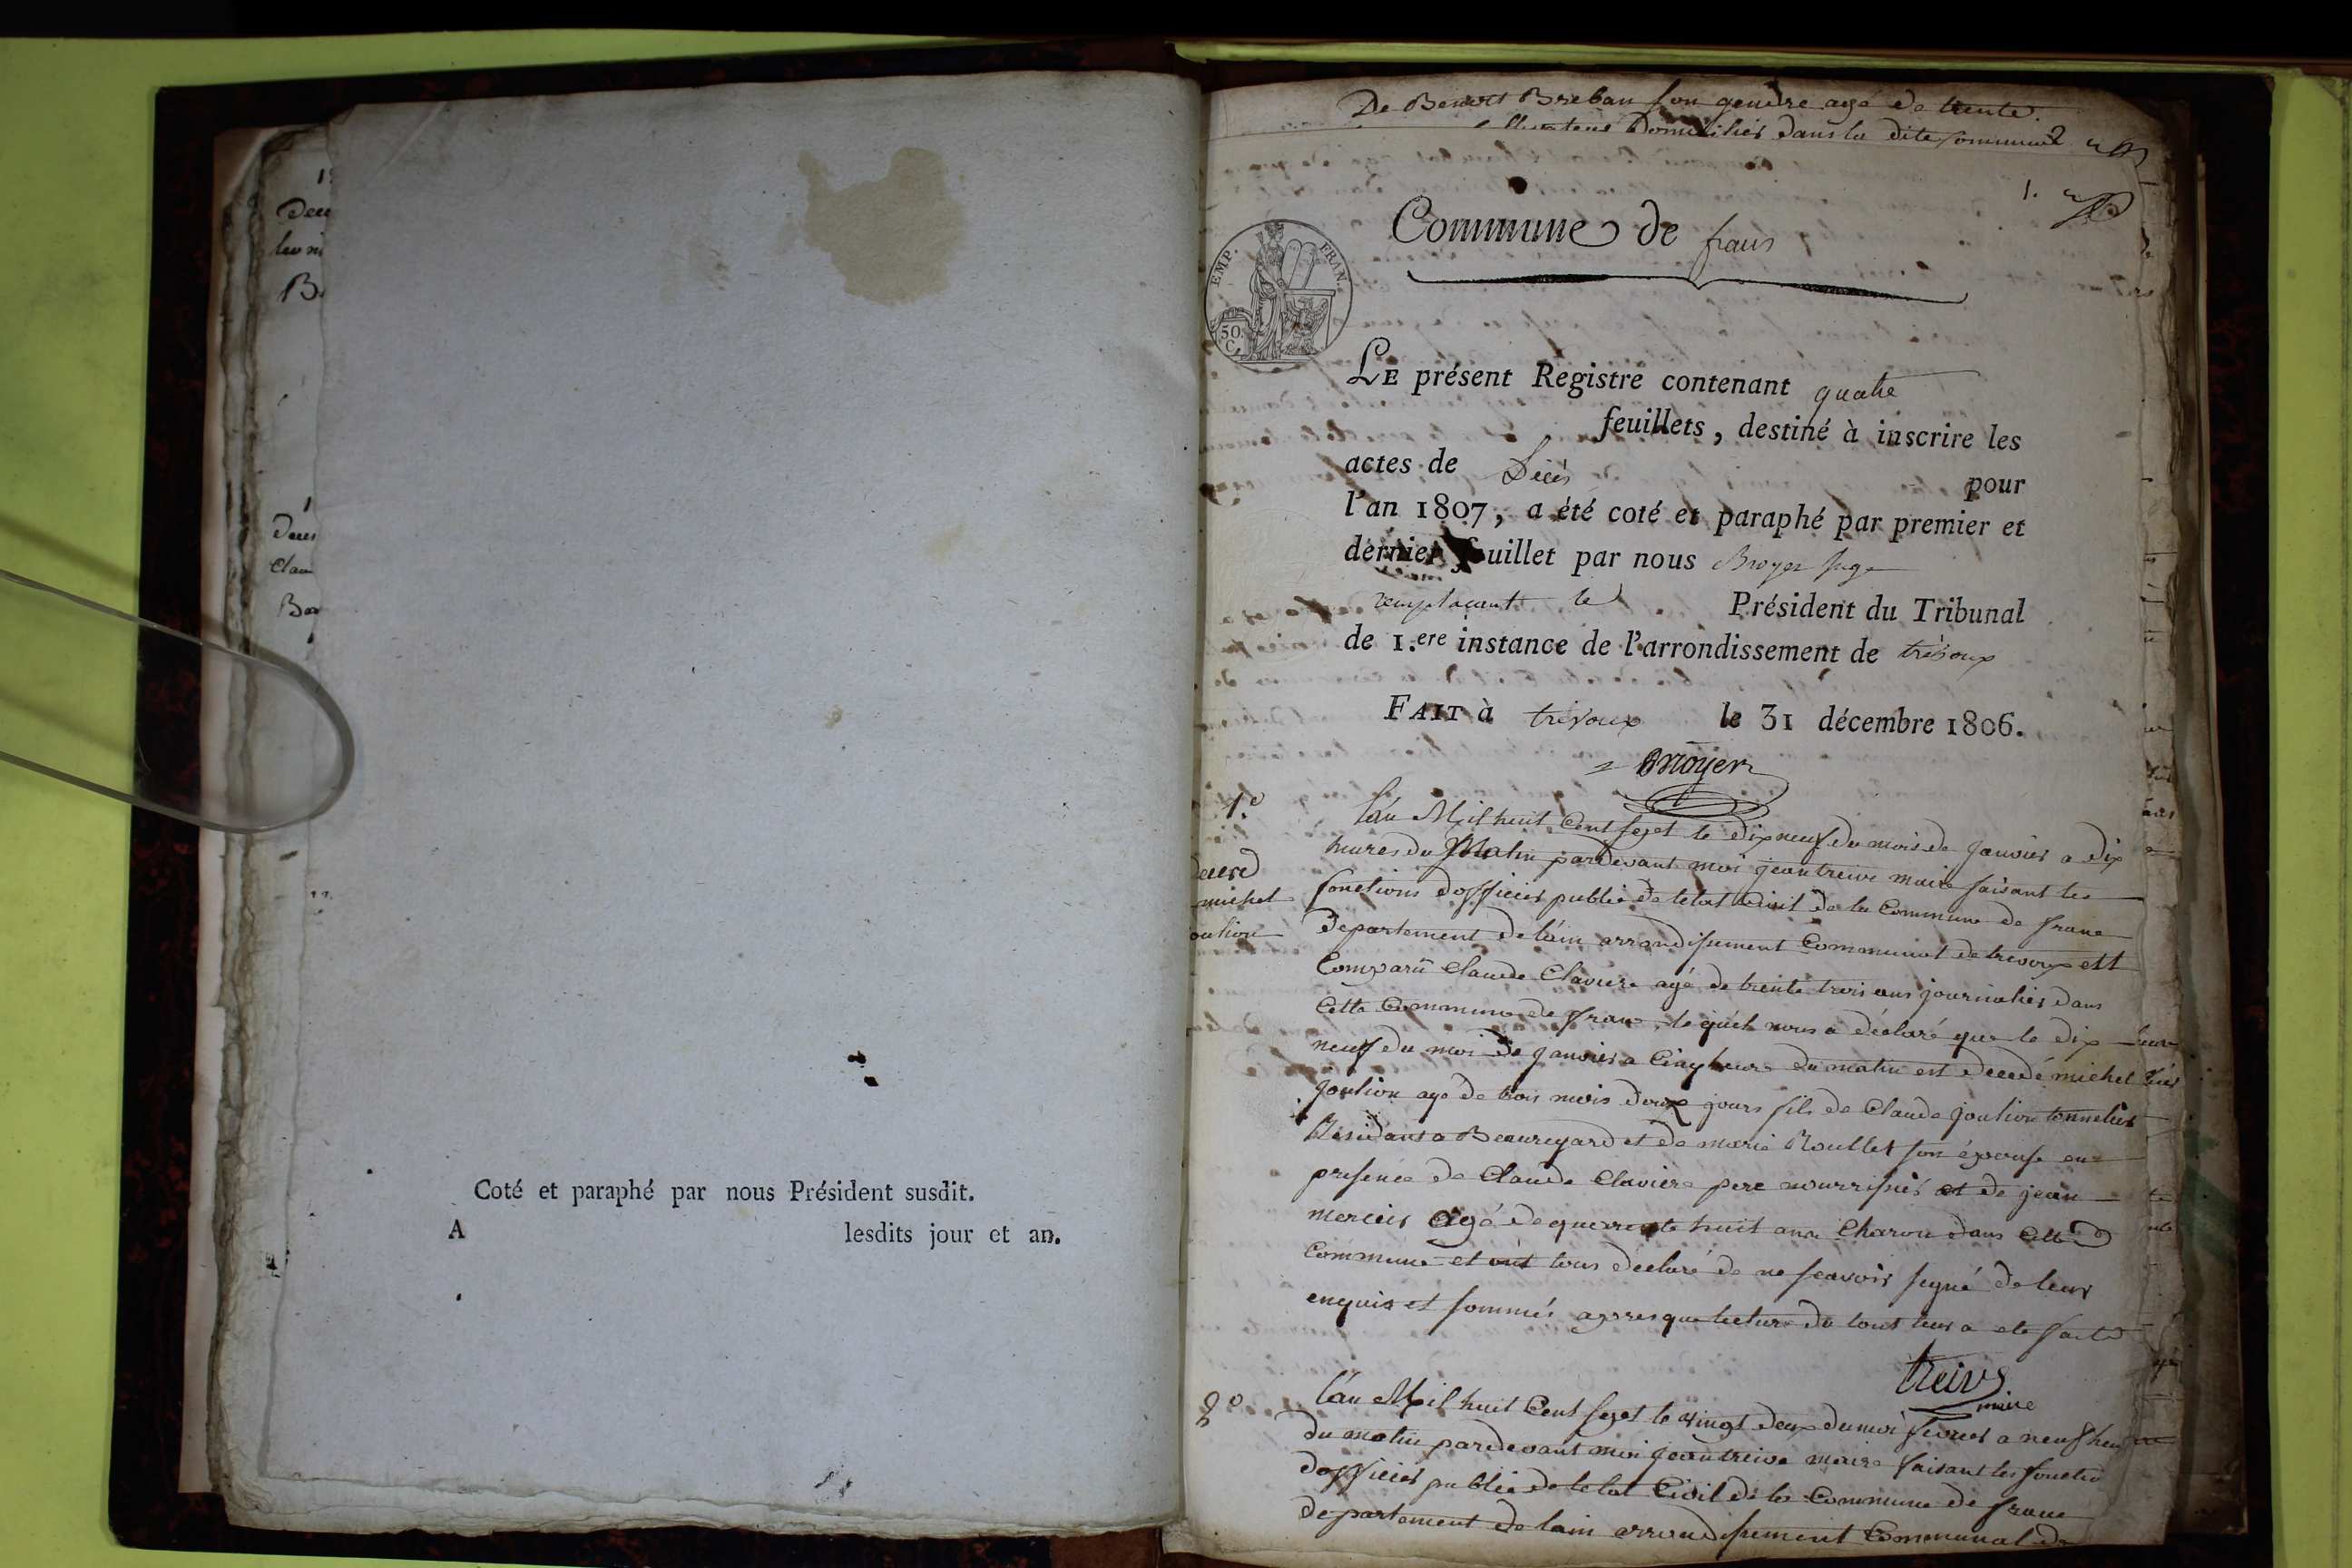 Coté et paraphé par nous Président susdit.
A lesdits jour et an.
De Benoit Breban son gendre agé de trente
Domiciliés dans la dite Commune
1.
Commune de frans
EMP. FRAN.
50 C.
LE présent Registre contenant quatre
feuillets, destiné à inscrire les
actes de Décès pour
l'an 1807, a été coté et paraphé par premier et
dernier feuillet par nous Broyer juge
remplacant le Président du Tribunal
de 1.ere instance de l'arrondissement de trévoux
FAIT à trévoux le 31 décembre 1806.
Broyer
1.o
michel
L'an Mil huit Cent sept le dix neuf du mois de janvier a dix
heures du Matin pardevant moi jean treive maire faisant les
fonctions d'officier public de letat Civil de la Commune de frans
Departement de l'ain arrondisement Communal de trevoux est
Comparû Claude Claviere agé de trente trois ans journalier dans
Cette Commune de frans, le quel nous a déclaré que le dix
neuf du moi de janvier a Cinq heure du matin est decedé michel
joulion age de trois mois doux jours fils de Claude joulion tonnelier
Residant a Beauregard et de marie Roullet son épouse en
presence de Claude Claviere pere nourrisier et de jean
mercier agé de quarante huit ans Charon dans Cette
Commune et ont tous declaré de ne scavoir signé de leur
enquis et sommés apres que lecture du tout leur a ete faite
treive
maire
2o
L'an Mil huit Cent sept le vingt deux du moi fevrier a neuf heu
du matin pardevant moi jean treive maire faisant les fonctio
d'officier public de letat Civil de la Commune de frans
departement de lain arrondisement Communal de